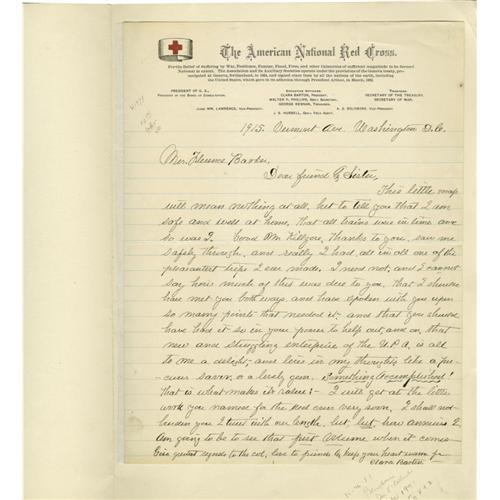 The American National Red Cross.
For the Relief of Suffering by War, Pestilence, Famine, Flood, Fires, and other Calamities of sufficient magnitude to be deemed
National in extent. The Association and its Auxiliary Societies operate under the provisions of the Geneva treaty, pro-
mulgated at Geneva, Switzerland, in 1864, and signed since then by all the nations of the earth, including
the United States, which gave in its adhesion through President Arthur, in March, 1882.
PRESIDENT OF U. S.,
PRESIDENT OF THE BOARD OF CONSULTATION.
EXECUTIVE OFFICERS
CLARA BARTON, PRESIDENT.
WALTER P. PHILLIPS, GEN'L SECRETARY.
GEORGE KENNAN, TREASURER.
TRUSTEES
SECRETARY OF THE TREASURY.
SECRETARY OF WAR.
JUDGE WM. LAWRENCE, VICE-PRESIDENT.
A. S. SOLOMONS, VICE-PRESIDENT.
J. B. HUBBELL, GEN'L FIELD AGENT.
1915. Vermont Ave. Washington D.C.
Mrs. Florence Barker.
Dear friend & Sister,
This little
will mean nothing at all, but to tell you that I am
safe and well at home, that all trains were in time and
so was I. Good Mr Killgore, thanks to you, saw me
safely through, and really I had, all in all one of the
pleasantest trips I ever made. I need not, and I cannot
say how much of this was due to you, that I should
have met you both ways, and have spoken with you upon
so many points that needed it, and that you should
have had it so in your power to help out, and on, that
new and struggling enterprise of the U.P.A. is all
to me a delight, and lies in my thoughts like a
savor, or a lovely gem. Something Accomplished!
that is what makes its value: - I will get at the little
work you named for the Red Cross very soon. I shall not
burden you I trust with any length, but, but, how anxious I
am going to be to see that first Volume when it comes
Give greatest regards to the Col, love to friends & keep your heart warm for
Clara Barton